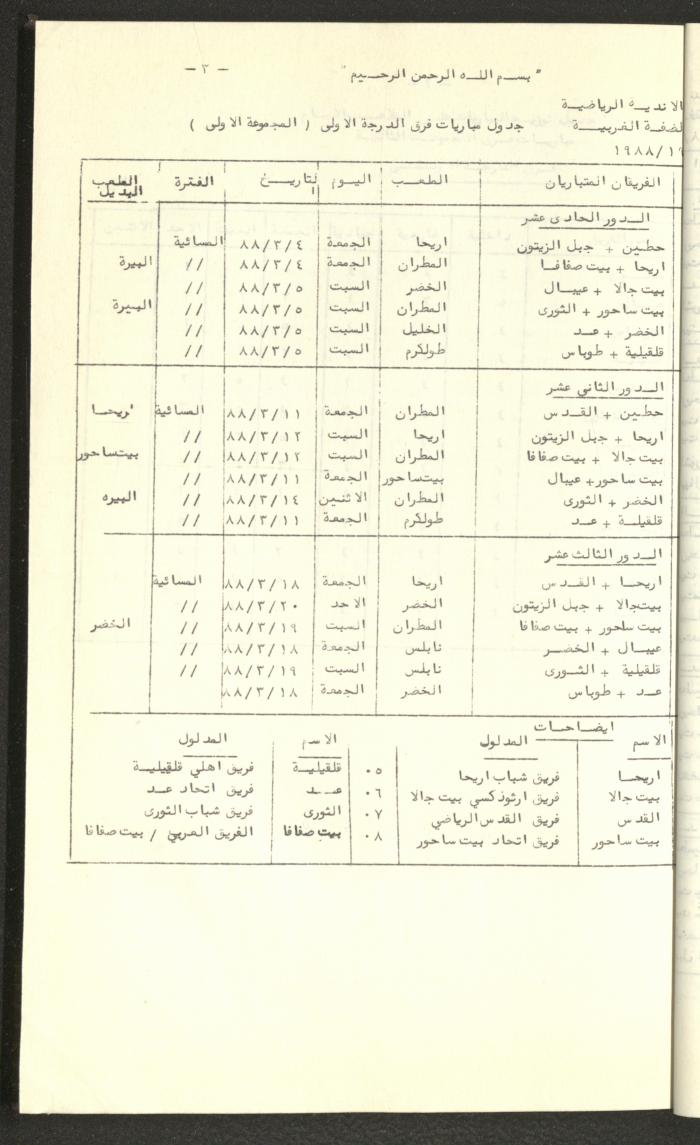 - ٣ -
" بسم الله الرحمن الرحيم "
الاندية الرياضية
لضفة الغربية جدول مباريات فرق الدرجة الاولى ( المجموعة الاولى )
١٩٨٨/١
الفريقان المتباريان الملعب اليوم التاريخ الفترة الملعب البديل
الدور الحادى عشر
حطين + جبل الزيتون اريحا الجمعة ٨٨/٣/٤ المسائية
اريحا + بيت صفافا المطران الجمعة ٨٨/٣/٤ // البيرة
بيت جالا + عيبال الخضر السبت ٨٨/٣/٥ //
بيت ساحور + الثورى المطران السبت ٨٨/٣/٥ // البيرة
الخضر + عد الخليل السبت ٨٨/٣/٥ //
قلقيلية + طوباس طولكرم السبت ٨٨/٣/٥ //
الدور الثاني عشر
حطين + القدس المطران الجمعة ٨٨/٣/١١ المسائية اريحا
اريحا + جبل الزيتون اريحا السبت ٨٨/٣/١٢ //
بيت جالا + بيت صفافا المطران السبت ٨٨/٣/١٢ // بيتساحور
بيت ساحور + عيبال بيتساحور الجمعة ٨٨/٣/١١ //
الخضر + الثورى المطران الاثنين ٨٨/٣/١٤ // البيره
قلقيلية + عد طولكرم الجمعة ٨٨/٣/١١ //
الدور الثالث عشر
اريحا + القدس اريحا الجمعة ٨٨/٣/١٨ المسائية
بيتجالا + جبل الزيتون الخضر الاحد ٨٨/٣/٢٠ //
بيت ساحور + بيت صفافا المطران السبت ٨٨/٣/١٩ // الخضر
عيبال + الخضر نابلس الجمعة ٨٨/٣/١٨ //
قلقيلية + الثورى نابلس السبت ٨٨/٣/١٩ //
عد + طوباس الخضر الجمعة ٨٨/٣/١٨
ايضاحات
الاسم المدلول الاسم المدلول
اريحا فريق شباب اريحا ٠٥ قلقيلية فريق اهلي قلقيلية
بيت جالا فريق ارثوذكسي بيت جالا ٠٦ عد فريق اتحاد عد
القدس فريق القدس الرياضي ٠٧ الثورى فريق شباب الثورى
بيت ساحور فريق اتحاد بيت ساحور ٠٨ بيت صفافا الفريق العربي / بيت صفافا